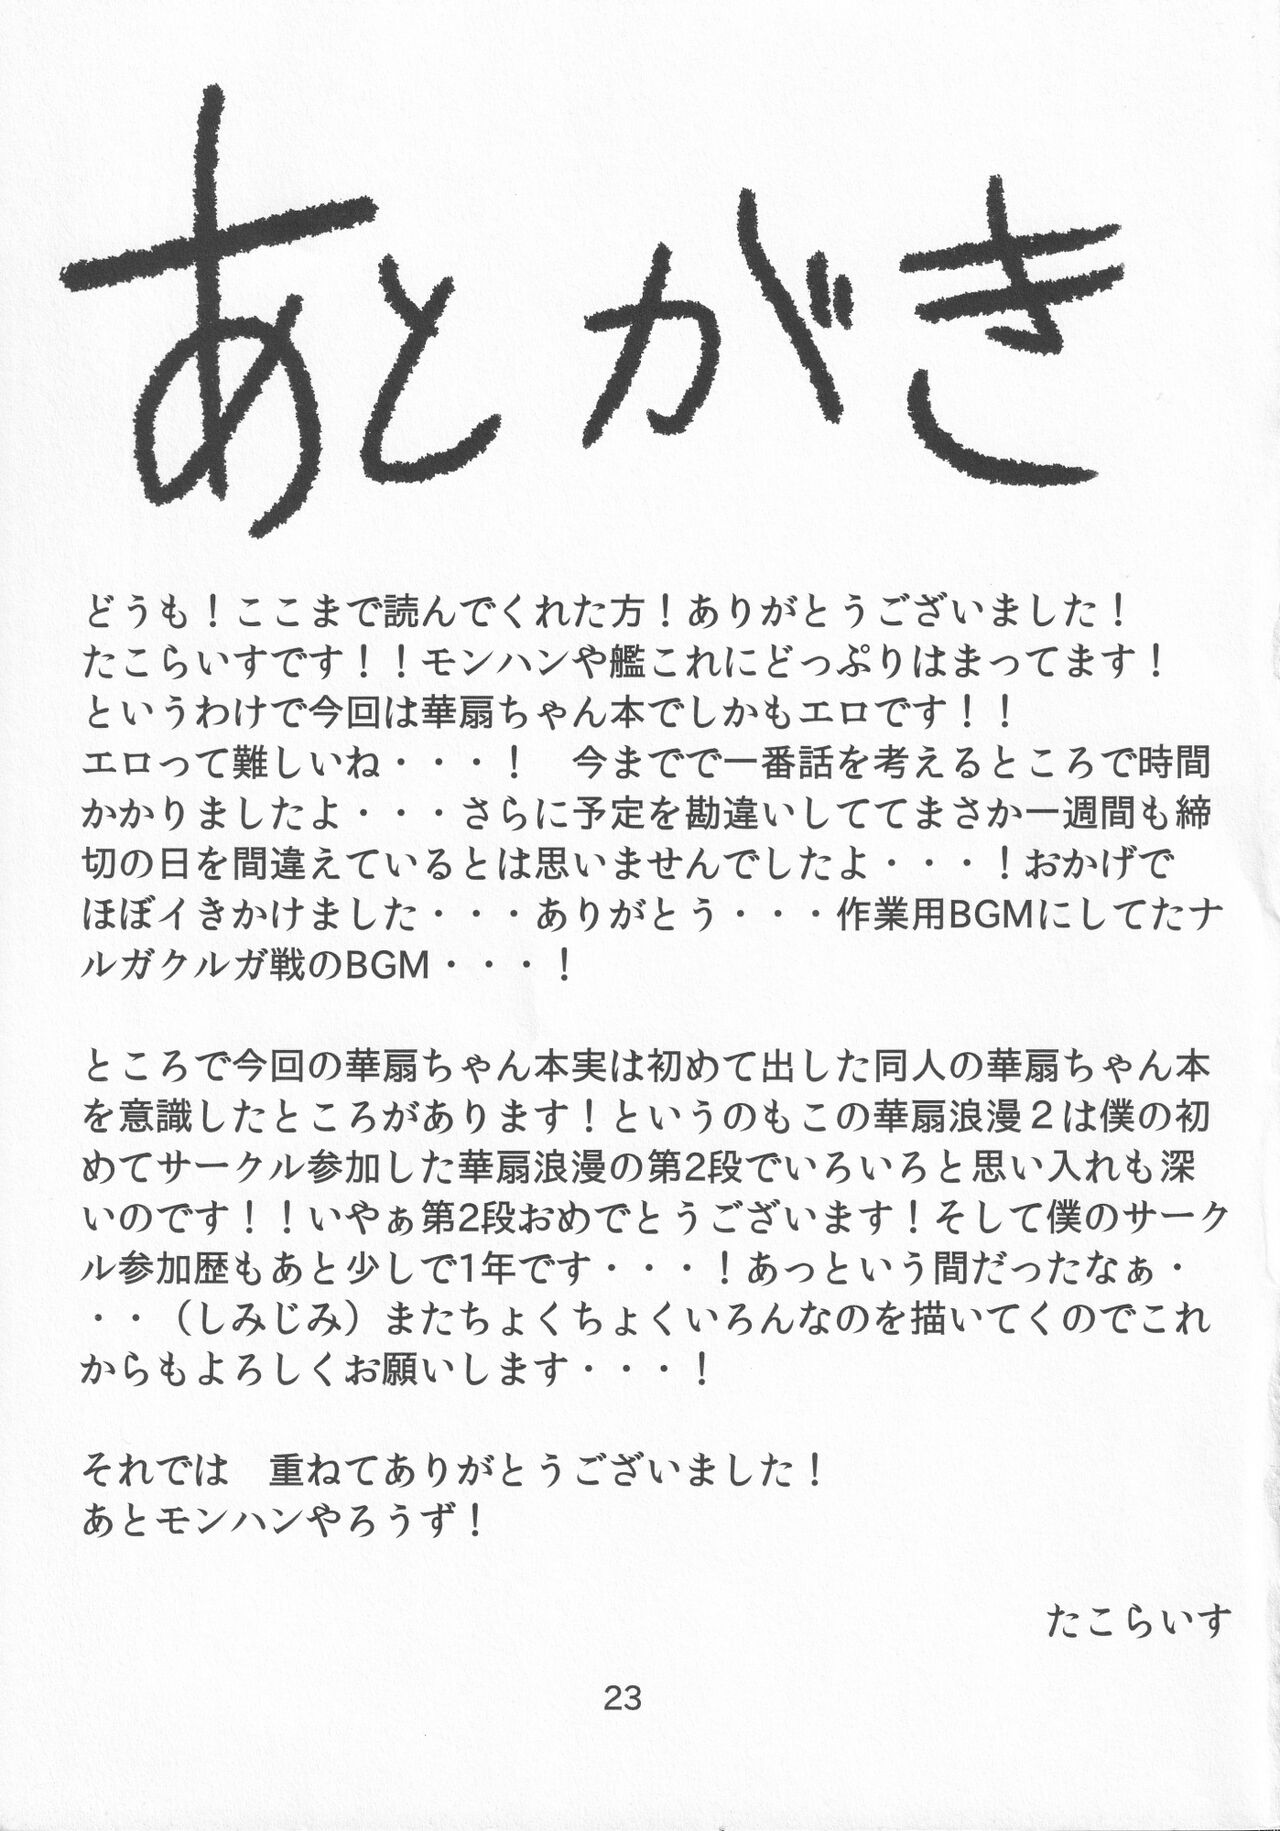 あとがき
どうも！ここまで読んでくれた方！ありがとうございました！
たこらいすです！！モンハンや艦これにどっぷりはまってます！
というわけで今回は華扇ちゃん本でしかもエロです！！
エロって難しいね・・・！　今までで一番話を考えるところで時間
かかりましたよ・・・さらに予定を勘違いしててまさか一週間も締
切の日を間違えているとは思いませんでしたよ・・・！おかげで
ほぼイきかけました・・・ありがとう・・・作業用BGMにしてたナ
ルガクルガ戦のBGM・・・！
ところで今回の華扇ちゃん本実は初めて出した同人の華扇ちゃん本
を意識したところがあります！というのもこの華扇浪漫２は僕の初
めてサークル参加した華扇浪漫の第2段でいろいろと思い入れも深
いのです！！いやぁ第2段おめでとうございます！そして僕のサーク
ル参加歴もあと少しで1年です・・・！あっという間だったなぁ・
・・（しみじみ）またちょくちょくいろんなのを描いてくのでこれ
からもよろしくお願いします・・・！
それでは　重ねてありがとうございました！
あとモンハンやろうず！
たこらいす
23